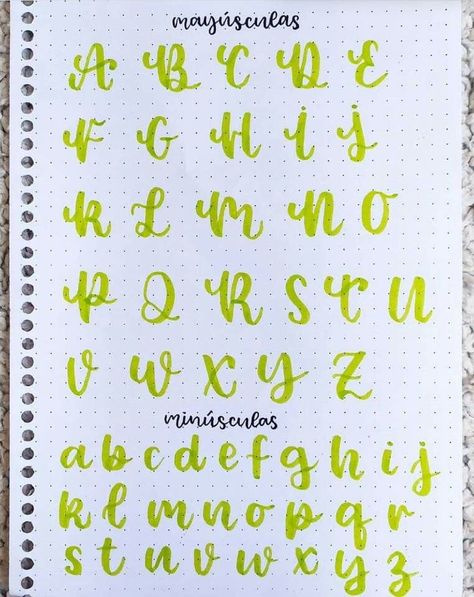 mayúsculas
A B C D E
F G H I J
K L M N O
P Q R S T U
V W X Y Z
minúsculas
a b c d e f g h i j
k l m n o p q r
s t u v w x y z